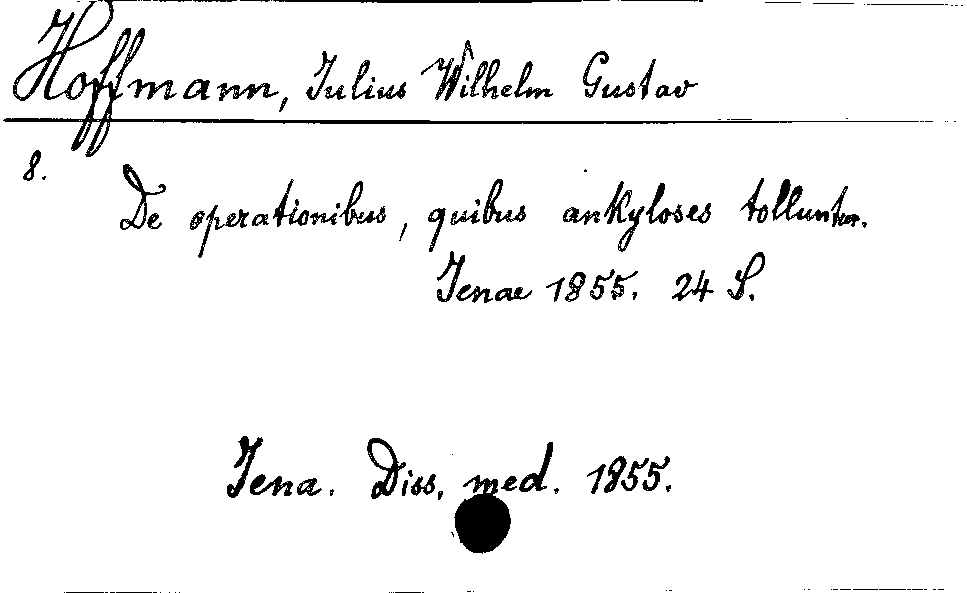 Hoffmann, Julius Wilhelm Gustav
8.
De operationibus, quibus ankyloses tolluntur.
Jenae 1855. 24 S.
Jena. Diss. med. 1855.